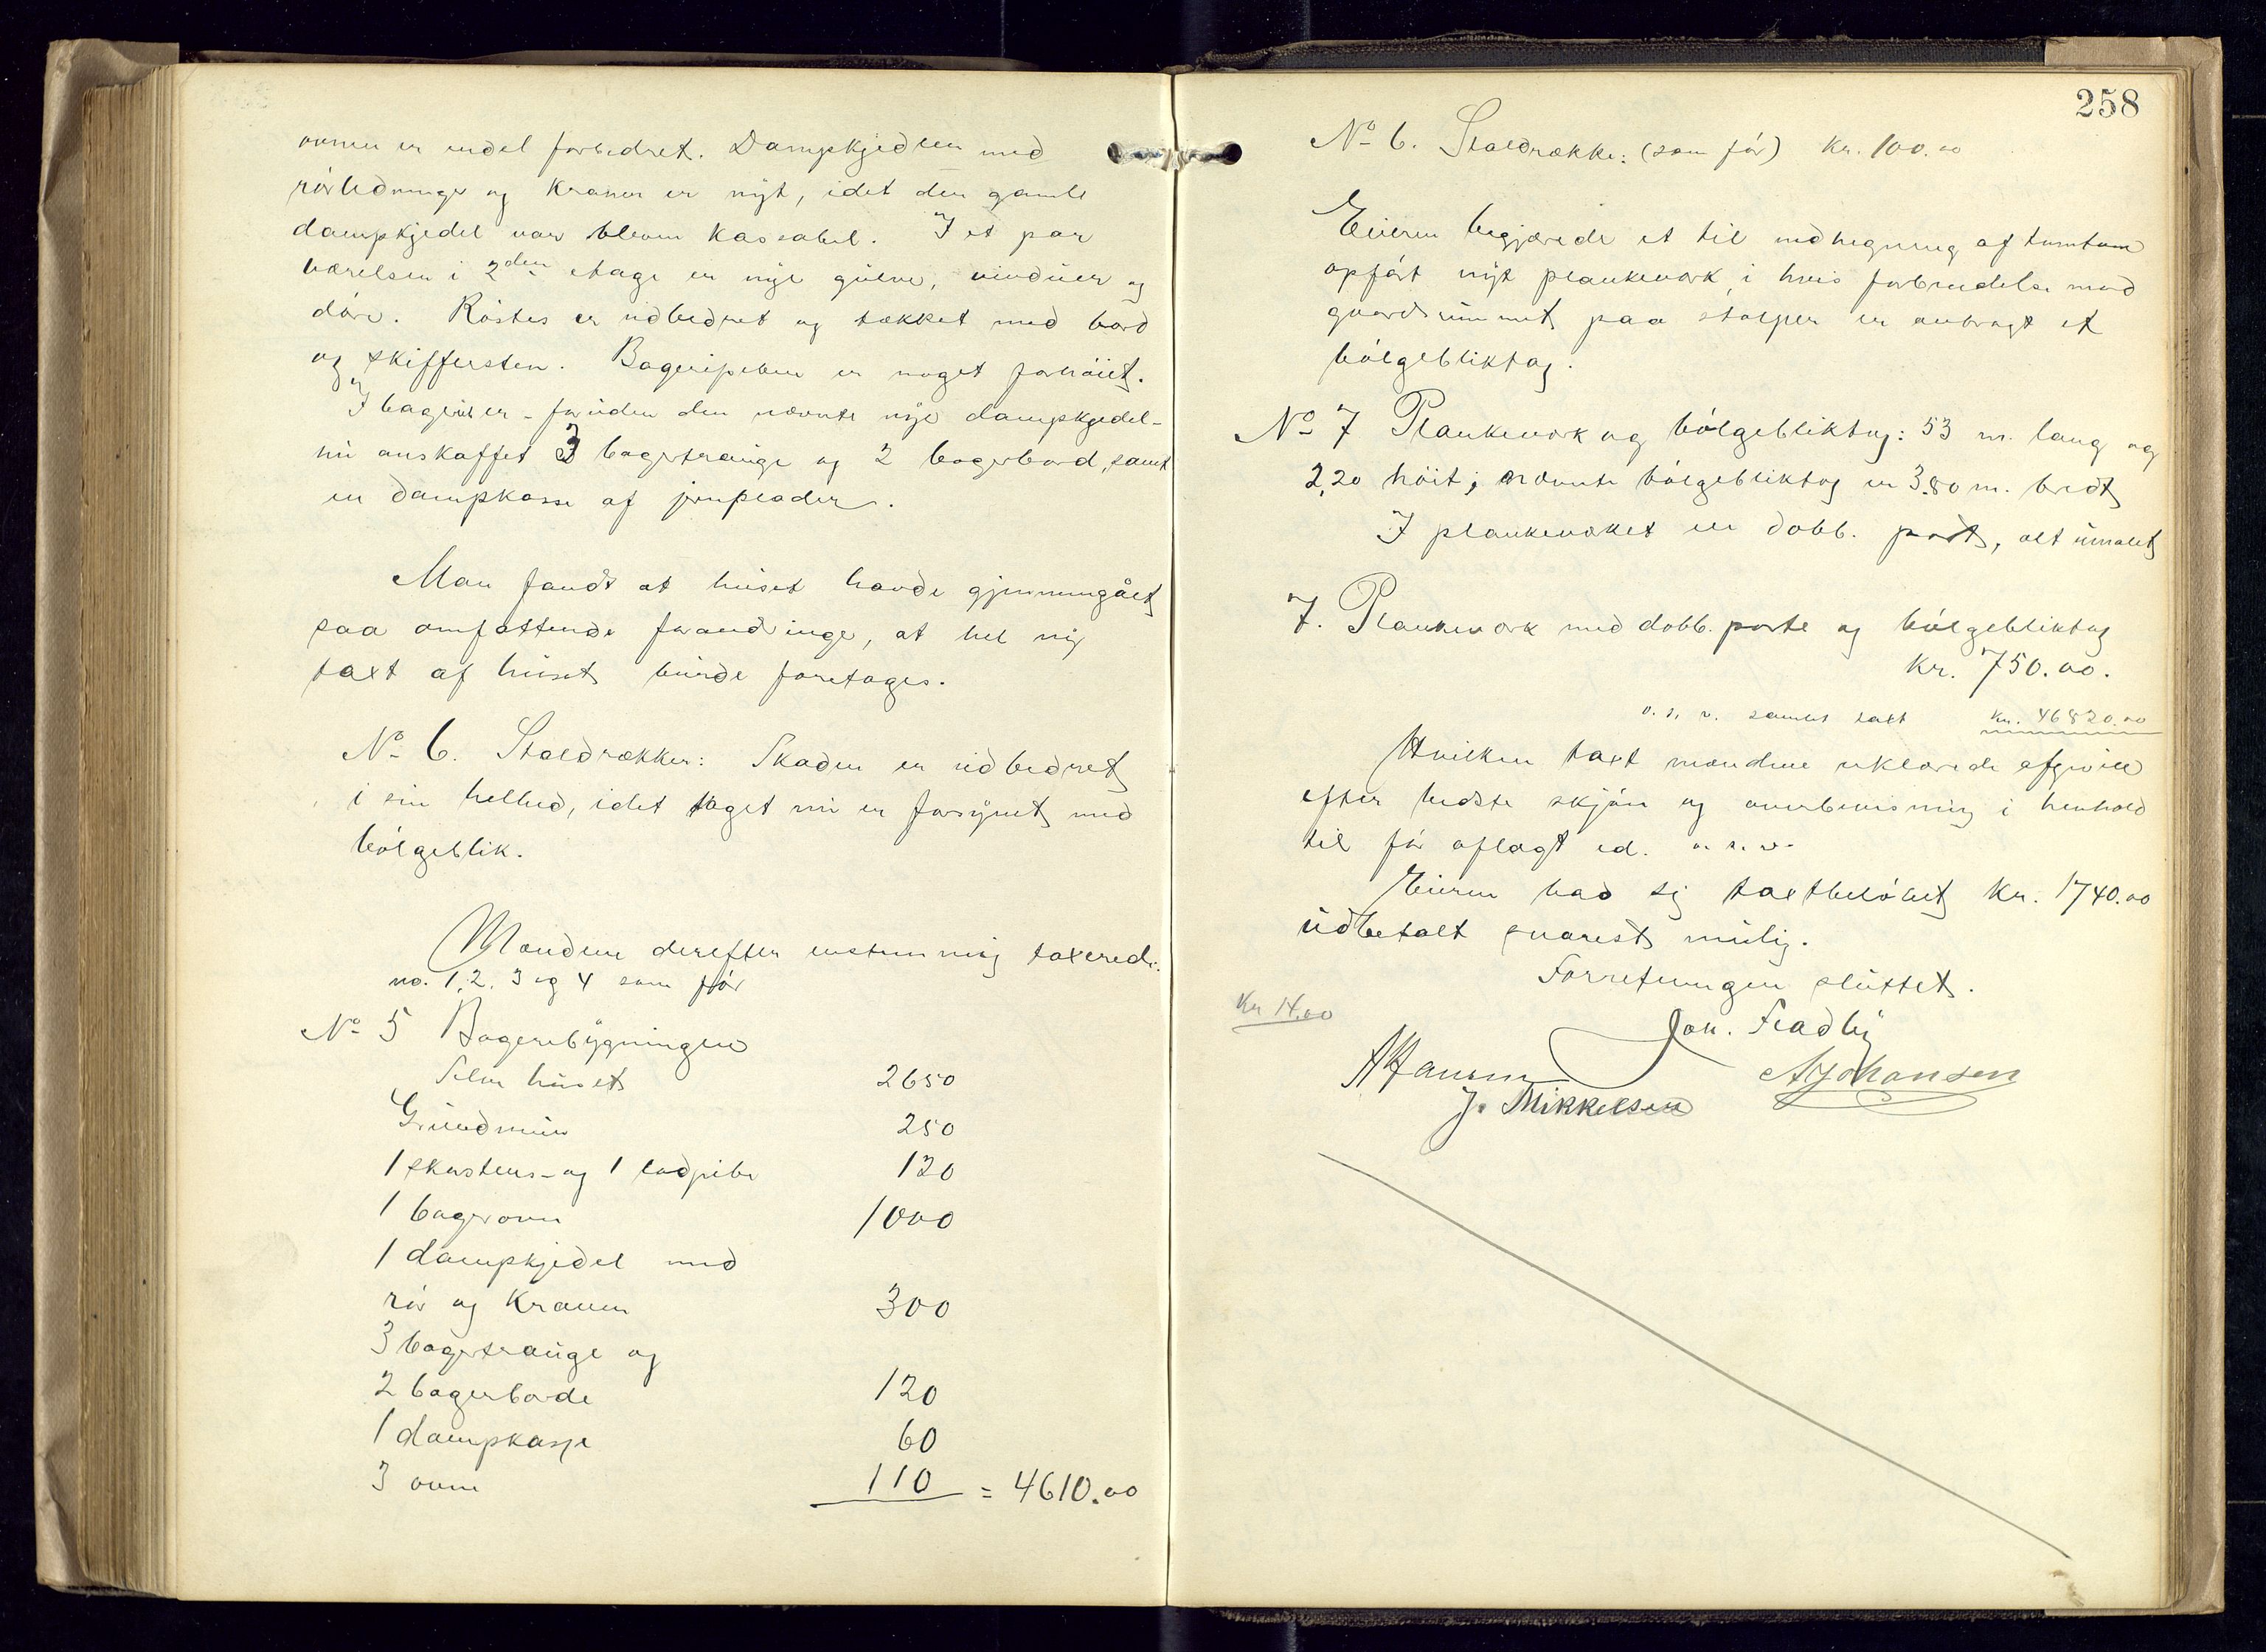 ovnen er endel forbedret. Dampkjedlen med
rörledninger og Kraner er nyt, idet den gamle
dampkjedel var bleven Kassabel. I et par
værelser i 2den etage er nye gulve, vinduer og
döre. Röstes er udbedret og tækket med bord
og skiffersten. Bageripiben er noget forhöiet.
I bageriet er - foruden den nævnte nye dampkjedel -
nu anskaffet 3 bagertrauge og 2 bagerbord, samt
en dampkasse af jernplader.
Man fandt at huset havde gjennemgået
saa omfattende forandringer, at hel ny
taxt af huset burde foretages.
No 6. Staldrækken: Skaden er udbedret
i sin helhed, idet taget nu er forsynet med
bölgeblik.
Mændene derefter enstemmig taxerede:
no. 1, 2, 3 og 4 som för
No 5 Bageribygningen
Selve huset 2650
Grundmur 250
1 skorstens- og 1 lodpibe 120
1 bagerovn 1000
1 dampkjedel med
rör og Kraner 300
3 bagertrauge og
2 bagerborde 120
1 dampkasse 60
3 ovne 110 = 4610.00
258
No 6. Staldrække: (som för) Kr. 100.00
Eieren begjærede et til indhegning af tomten
opfört nyt plankeværk, i hvis forbindelse mod
gaardsrummet paa stolper er anbragt et
bölgebliktag.
No 7 Plankeværk og bölgebliktag: 53 m. lang og
2,20 höit; nævnte bölgebliktag er 3.80 m. bredt
I plankeværket en dobb. port, alt umalet
7. Plankeværk med dobb. porte og bölgebliktag
Kr. 750.00.
o. s. v. samlet taxt Kr. 46820.00
Hvilken taxt mændene erklærede afgiven
efter bedste skjön og overbevisning i henhold
til för aflagt ed. o. s. v.
Eieren bad sig taxtbelöbet Kr. 1740.00
udbetalt snarest mulig.
Forretningen sluttet.
Kr 14.00
Joh. Fladby
A Hansen A Johansen
J. Mikkelsen